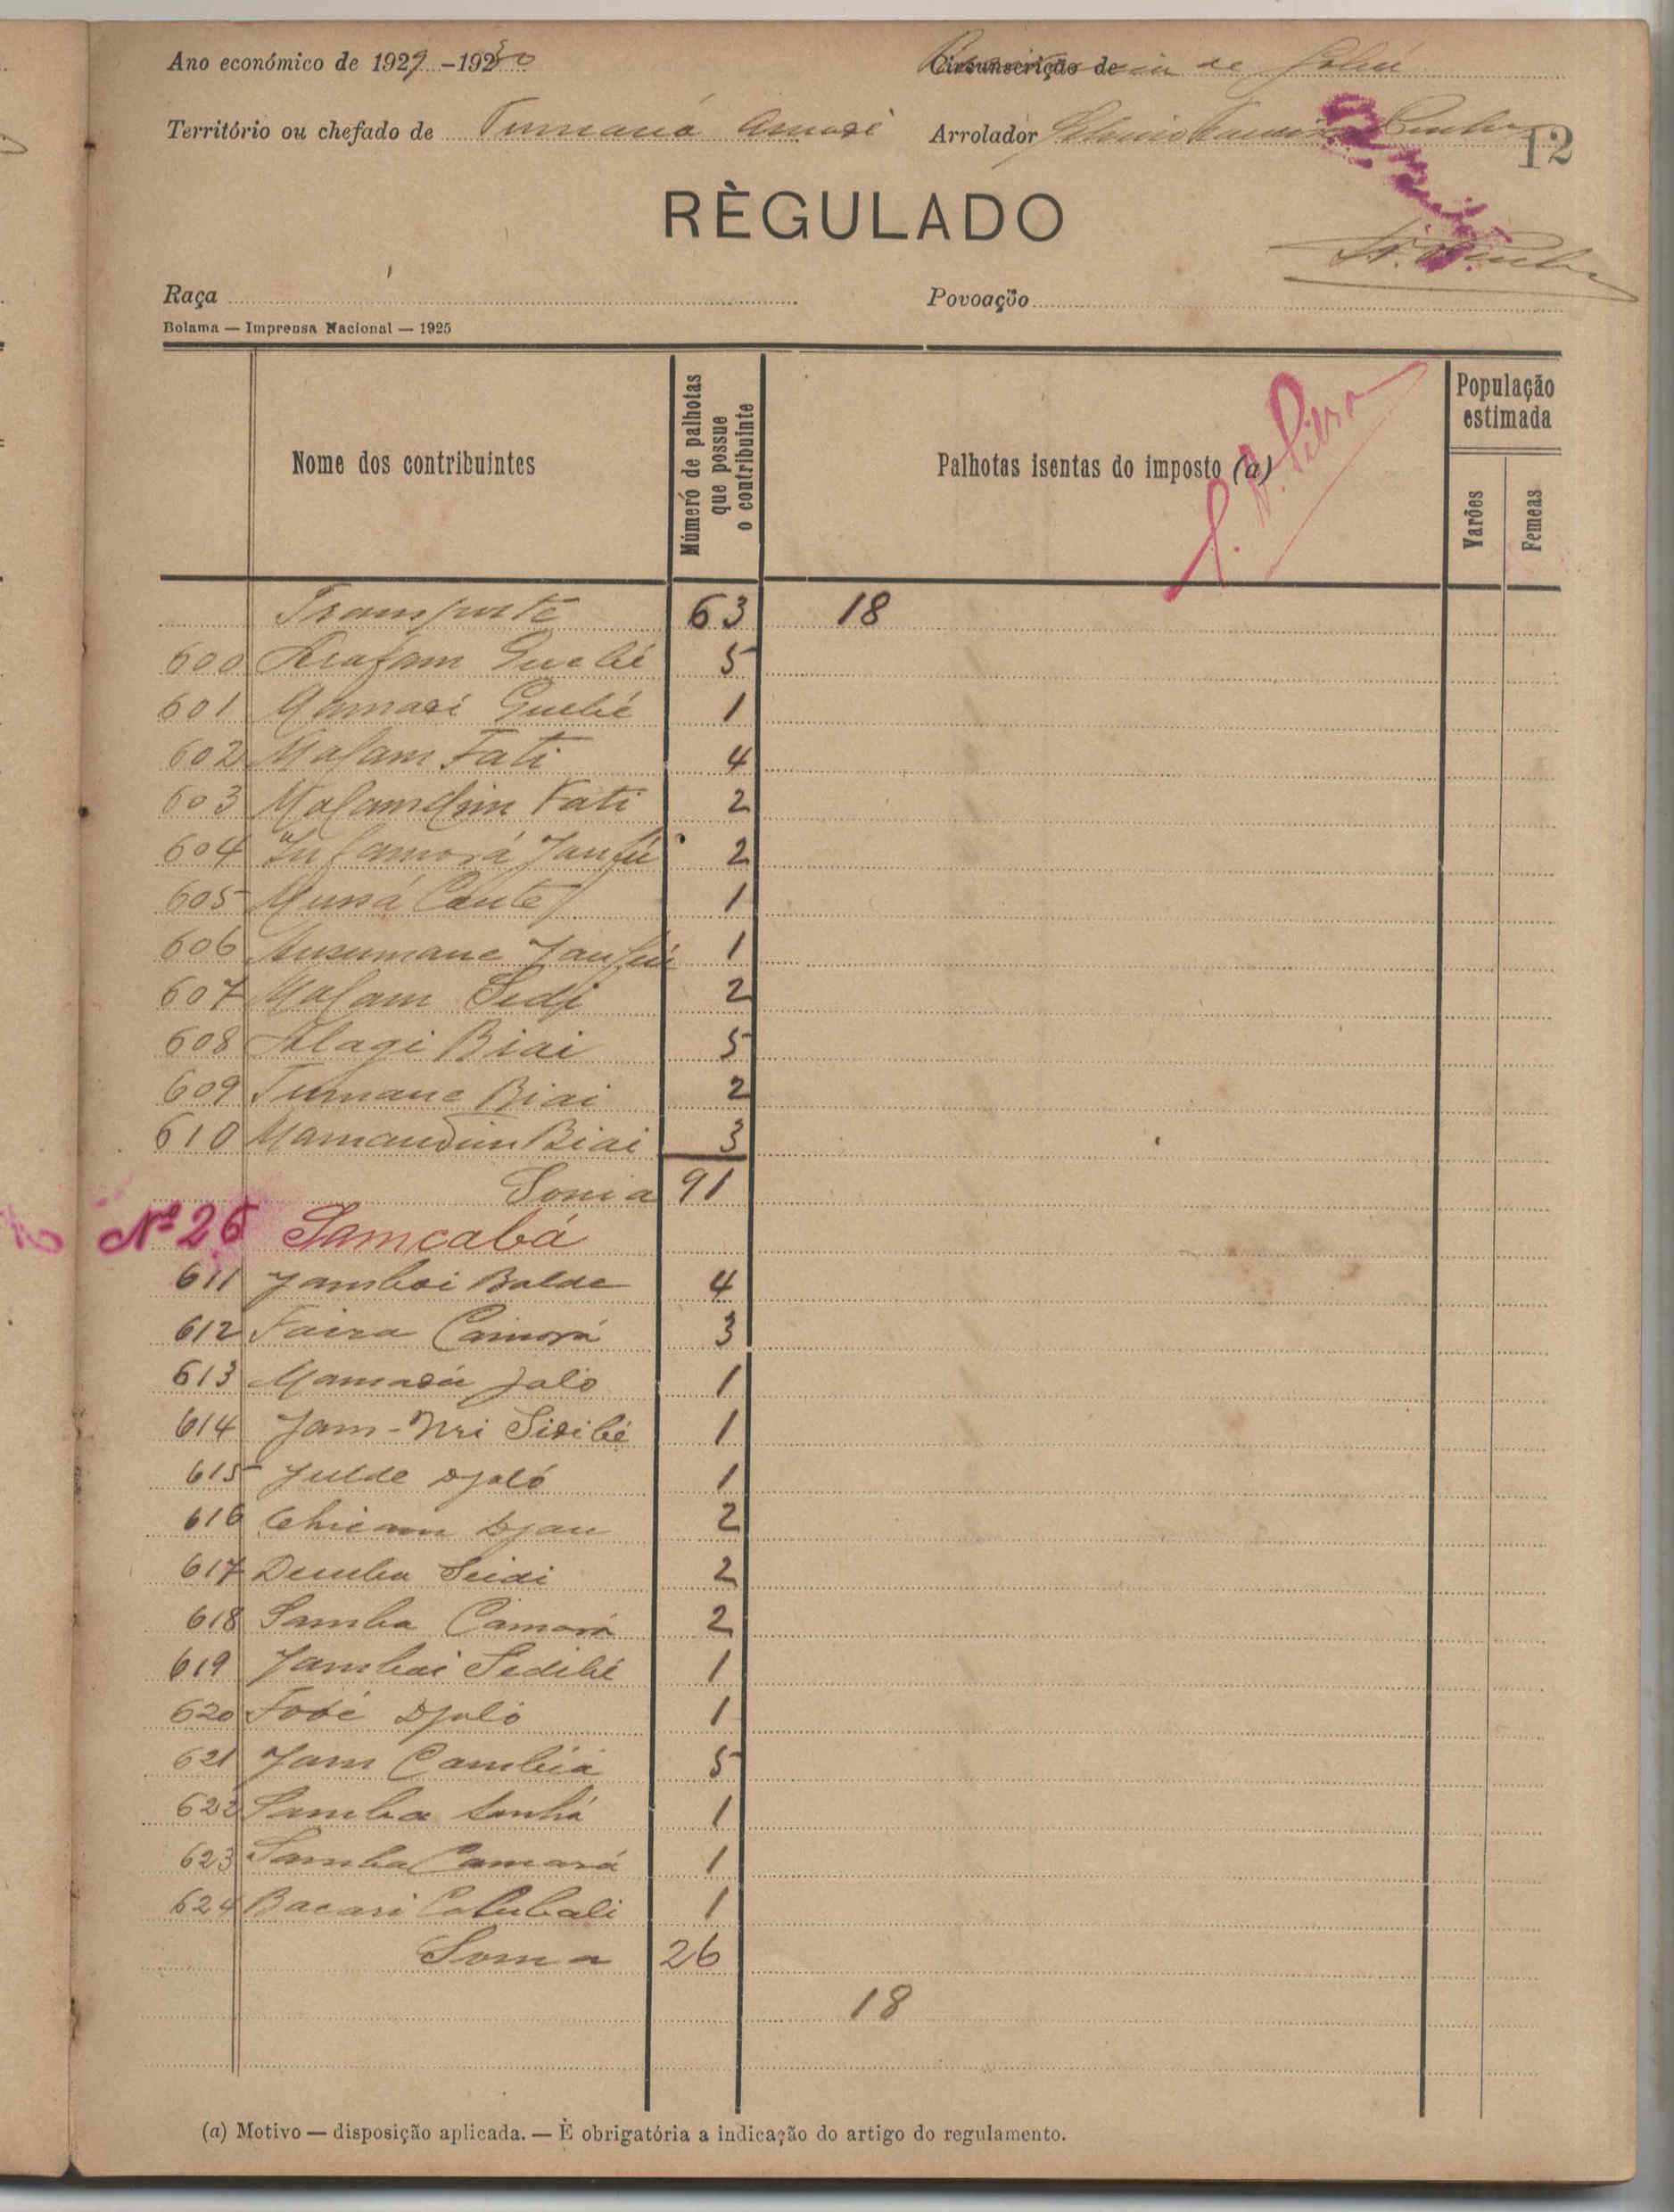 Ano económico de 1929-1930
Circunscrição de de Gabú
Território ou chefado de Tumaná Amadi Arrolador
12
RÈGULADO
Raça Povoaçõo
Bolama — Imprensa Nacional — 1925
Nome dos contribuintes
Múmeró de palhotas que possue o contribuinte
Palhotas isentas do imposto (a)
População estimada
Varões
Femeas
Transporte 63 18
600 5
601 1
602 Malam Fati 4
603 Malamdim Fati 2
604 2
605 Mussá Cante 1
606 1
607 Malam 2
608 Alagi Biai 5
609 Tumane Biai 2
610 Mamandim Biai 3
Soma 91
Nº 26 Samcabá
611 Jamboi Balde 4
612 3
613 Mamadú Jaló 1
614 Jam-Nri Sidibé 1
615 Julde Djaló 1
616 Djau 2
617 Demba Seidi 2
618 Samba Camará 2
619 Jambai Sedibé 1
620 Djaló 1
621 Jam 5
622 Samba Sanhá 1
623 Samba Camará 1
624 Bacari Colubali 1
Soma 26
18
(a) Motivo — disposição aplicada. — È obrigatória a indicação do artigo do regulamento.